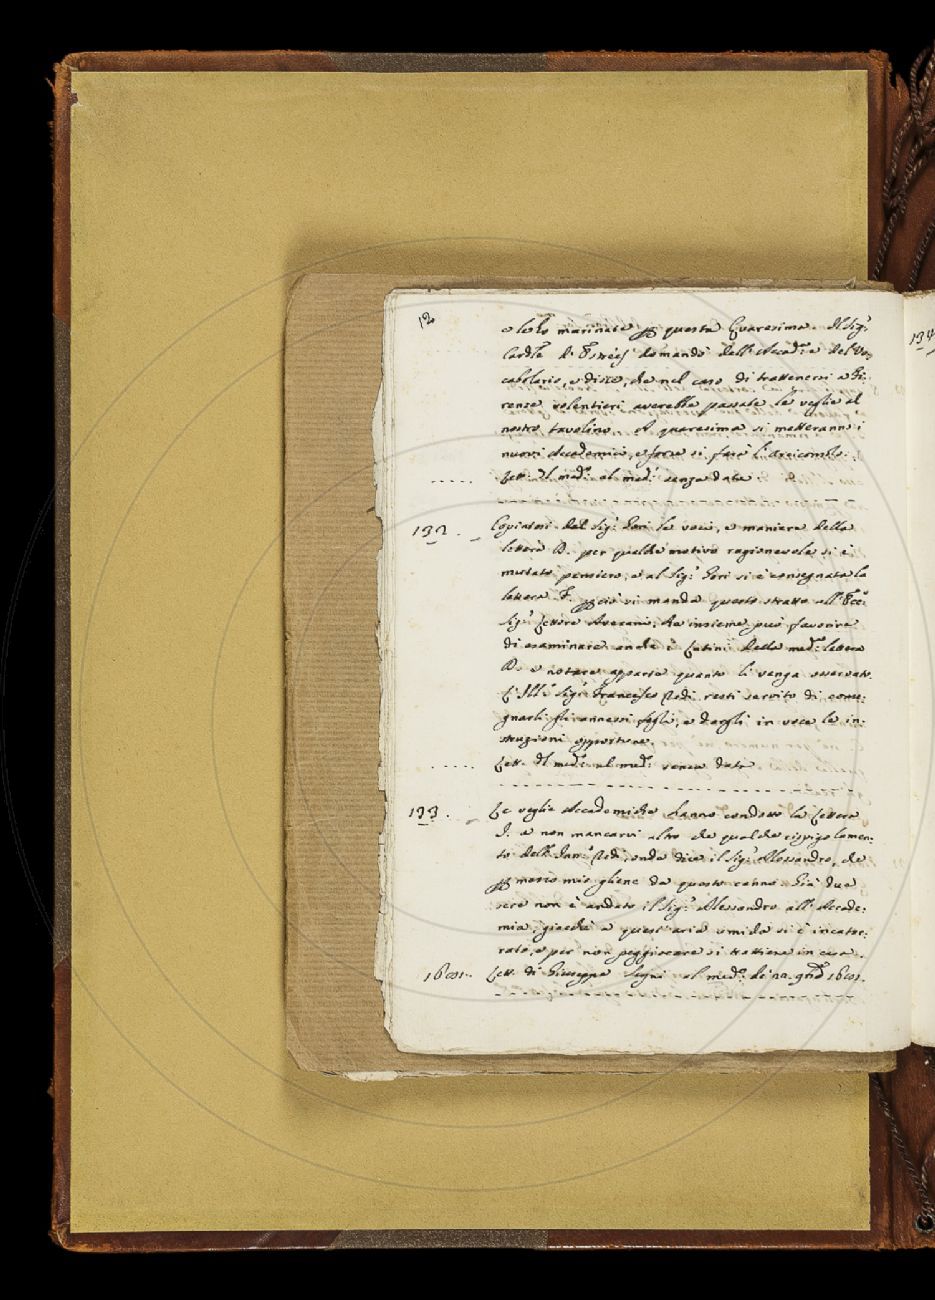 12
marinate p questa Quaresima. Il Sig.r
Card.le d' domandò dell' Accad.a e del Vo-
cabolario, e disse, che nel caso di trattenersi a Fi-
renze volentieri averebbe passate le veglie al
nostro tavolino. A quaresima si metteranno i
nuovi Accademici, e forse si farà l' Arciconsolo.
..... Lett. d.l med.o al med.o senza data
132. Copiatosi dal Sig.r le voci, e maniere della
lettera B. per qualche motivo ragionevole si è
mutato pensiero, e al Sig.r si è consegnata la
lettera F. p ciò vi manda questo stratto all' Ecc.mo
Sig.r Lettore Averani, che insieme può favorire
di esaminare anche i Latini della med.a lettera
B. e notare apparte quanto li venga osservato.
L' Ill.mo Sig.r Francesco Redi resti servito di conse-
gnarli gli annessi fogli, e dargli in voce le in-
struzioni opportune.
..... Lett. d.l med.o al med.o senza data
133. Le veglie Accademiche hanno condotto la Lettera
I. a non mancarvi altro che qualche lamen-
to dell' Redi, onde dice il Sig.r Alessandro, che
p mezzo mio gliene da questo cenno. Già due
sere non è andato il Sig.r Alessandro all' Accade-
mia, giacchè a quest' aria umida si è incatar-
rato, e per non peggiorare si trattiene in casa.
Lett. di Giuseppe Segni al med.o de' 22.
134